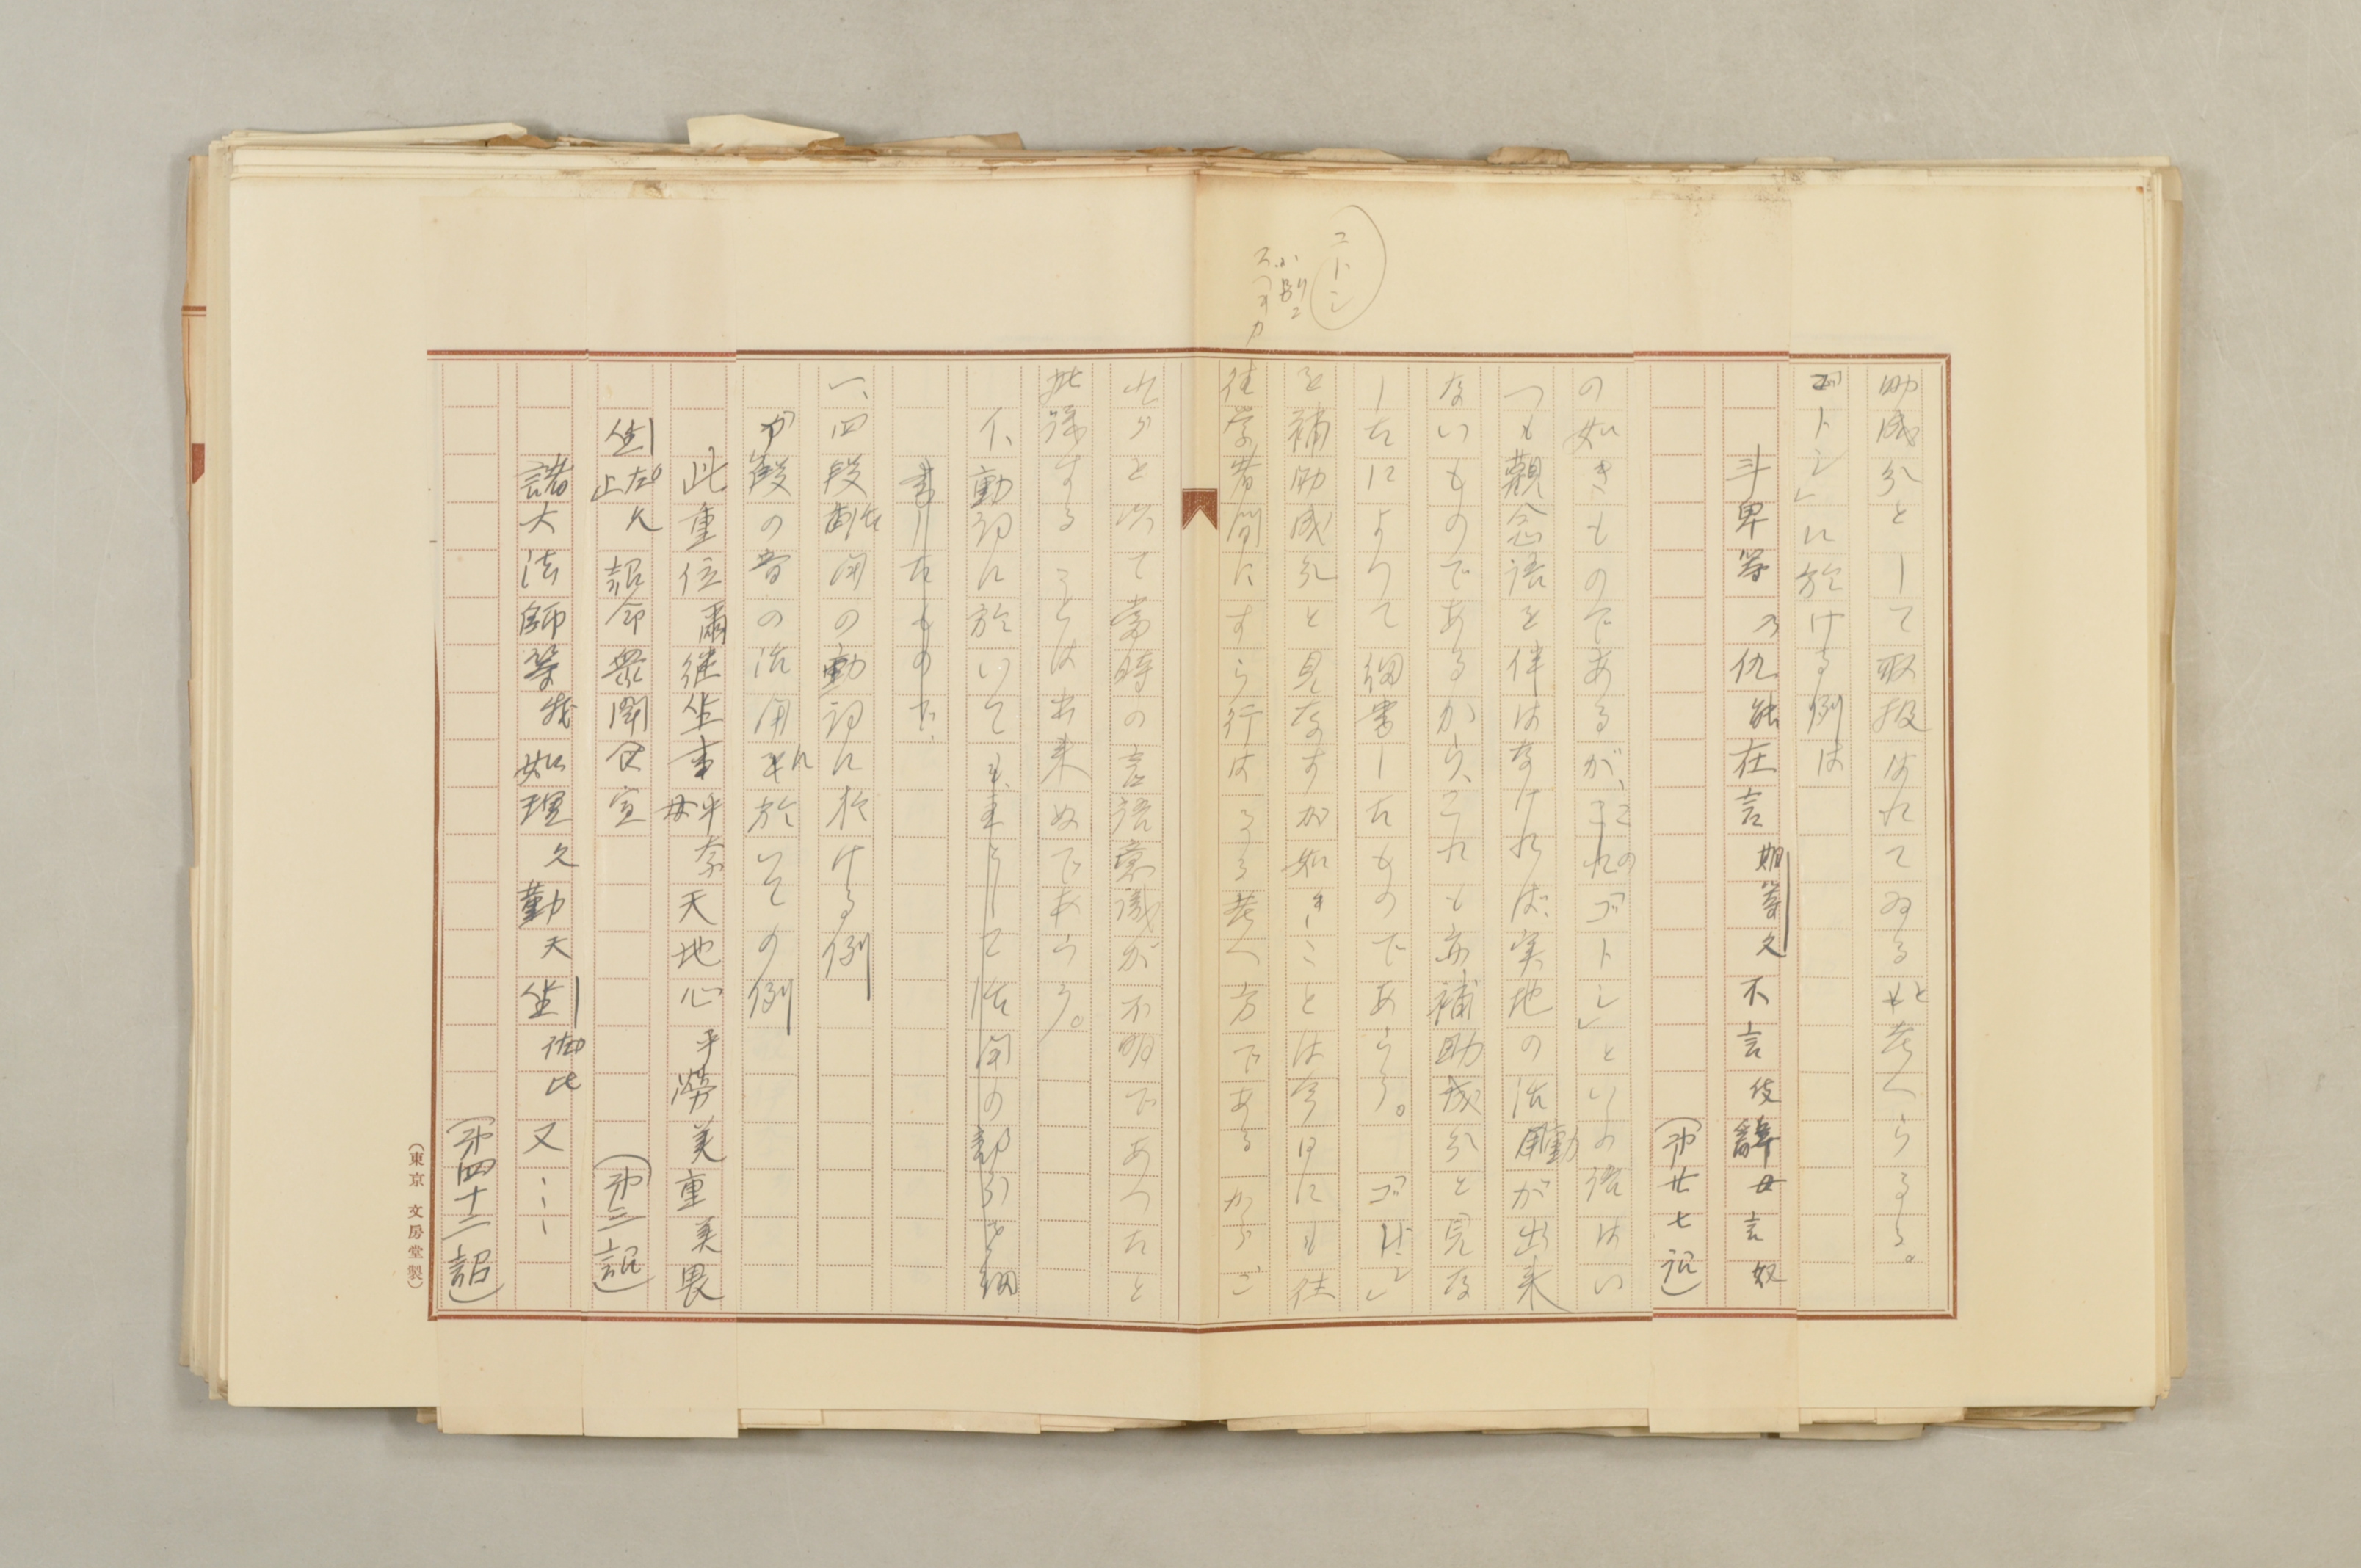 コトシ
助成分として取扱はれてゐると考へらるる。
「ゴトシ」に於ける例は
斗卑等乃仇能在言期等久不言伎辞母言奴
(第廿七詔)
の如きものであるが、この「ゴトシ」といふ語はい
つも觀念語を伴はなければ、実地の活動が出来
ないものであるから、これも亦補助成分と見な
したによりて細書したものであらう。「ゴトシ」
を補助成分と見なすが如きことは今日にも往
往学者間にすら行はるる考へ方であるからご
れらを以て當時の言語意識が不明であつたと
批評することは出来ぬであらう。
イ、動詞に於いても、主として活用の部分を細
書したものだ、
一、四段活用の動詞に於ける例
カ段の音の活用に於いての例
此重位爾継坐事乎奈母天地心乎労美重美畏
坐止左久詔命衆聞食宣
(第三詔)
諸大法師等我如理久勤天坐佐比又…
(第四十二詔)
(東京 文房堂製)